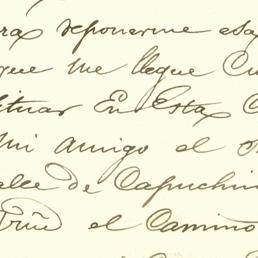 ra deponerme esa
que me llegue Cu
situar En Esta C
Mi amigo el
alle de Capuchin
Truje el Camino